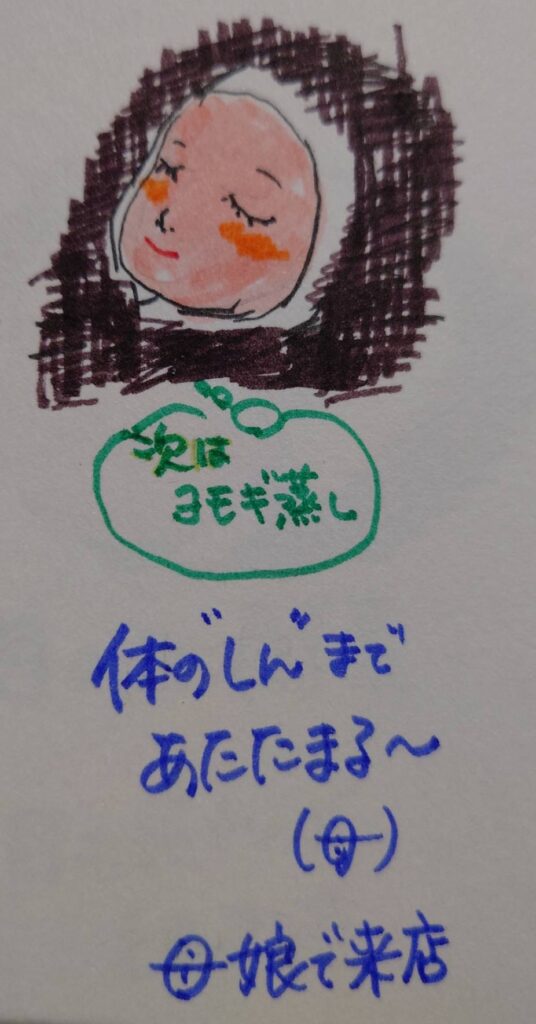 次は
ヨモギ蒸し
体の"しん"まで
あたたまる～
(母)
母娘で来店